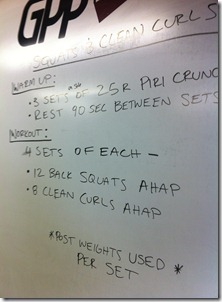 GPP
SQUATS & CLEAN CURLS
WARM UP:
• 3 SETS OF 25R PIRI CRUNC
• REST 90 SEC BETWEEN SETS
WORKOUT:
4 SETS OF EACH –
• 12 BACK SQUATS AHAP
• 8 CLEAN CURLS AHAP
*POST WEIGHTS USED
PER SET *